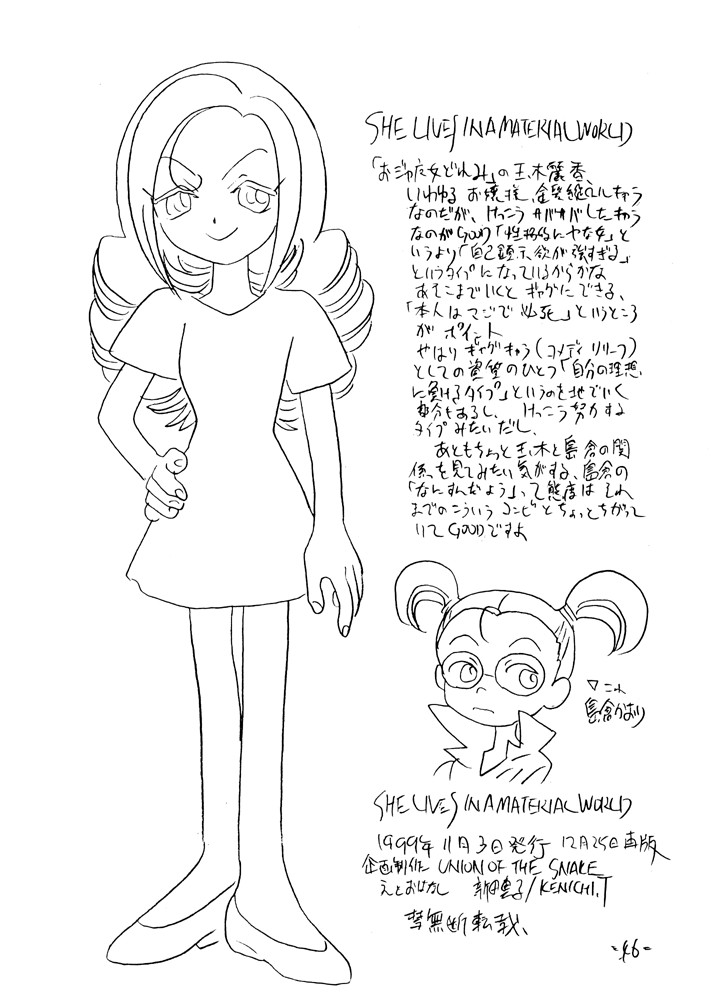 SHE LIVES IN A MATERIAL WORLD
「おジャ魔女どれみ」の玉木麗香、
いわゆるお嬢様、金髪縦ロールキャラ
なのだが、けっこうサバサバしたキャラ
なのがGOOD「性格的にヤな女」と
いうより「自己顕示欲が強すぎる」
というタイプになっているからかな
あそこまでいくとギャグにできる、
「本人はマジで必死」というところ
がポイント
やはりギャグキャラ(コメディリリーフ)
としての資質のひとつ「自分の理想
に負けるタイプ」というのを地でいく
部分もあるし、けっこう努力する
タイプみたいだし、
あともちょっと玉木と島倉の関
係を見てみたい気がする、島倉の
「なんすんだよう」って態度はそれ
までのこういうコンビとちょっとちがって
いてGOODですよ
▽これ
島倉かおり
SHE LIVES IN A MATERIAL WORLD
1999年11月3日発行 12月25日再版
企画制作 UNION OF THE SNAKE
えとおはなし /KENICHI.T
禁無断転載、
-46-